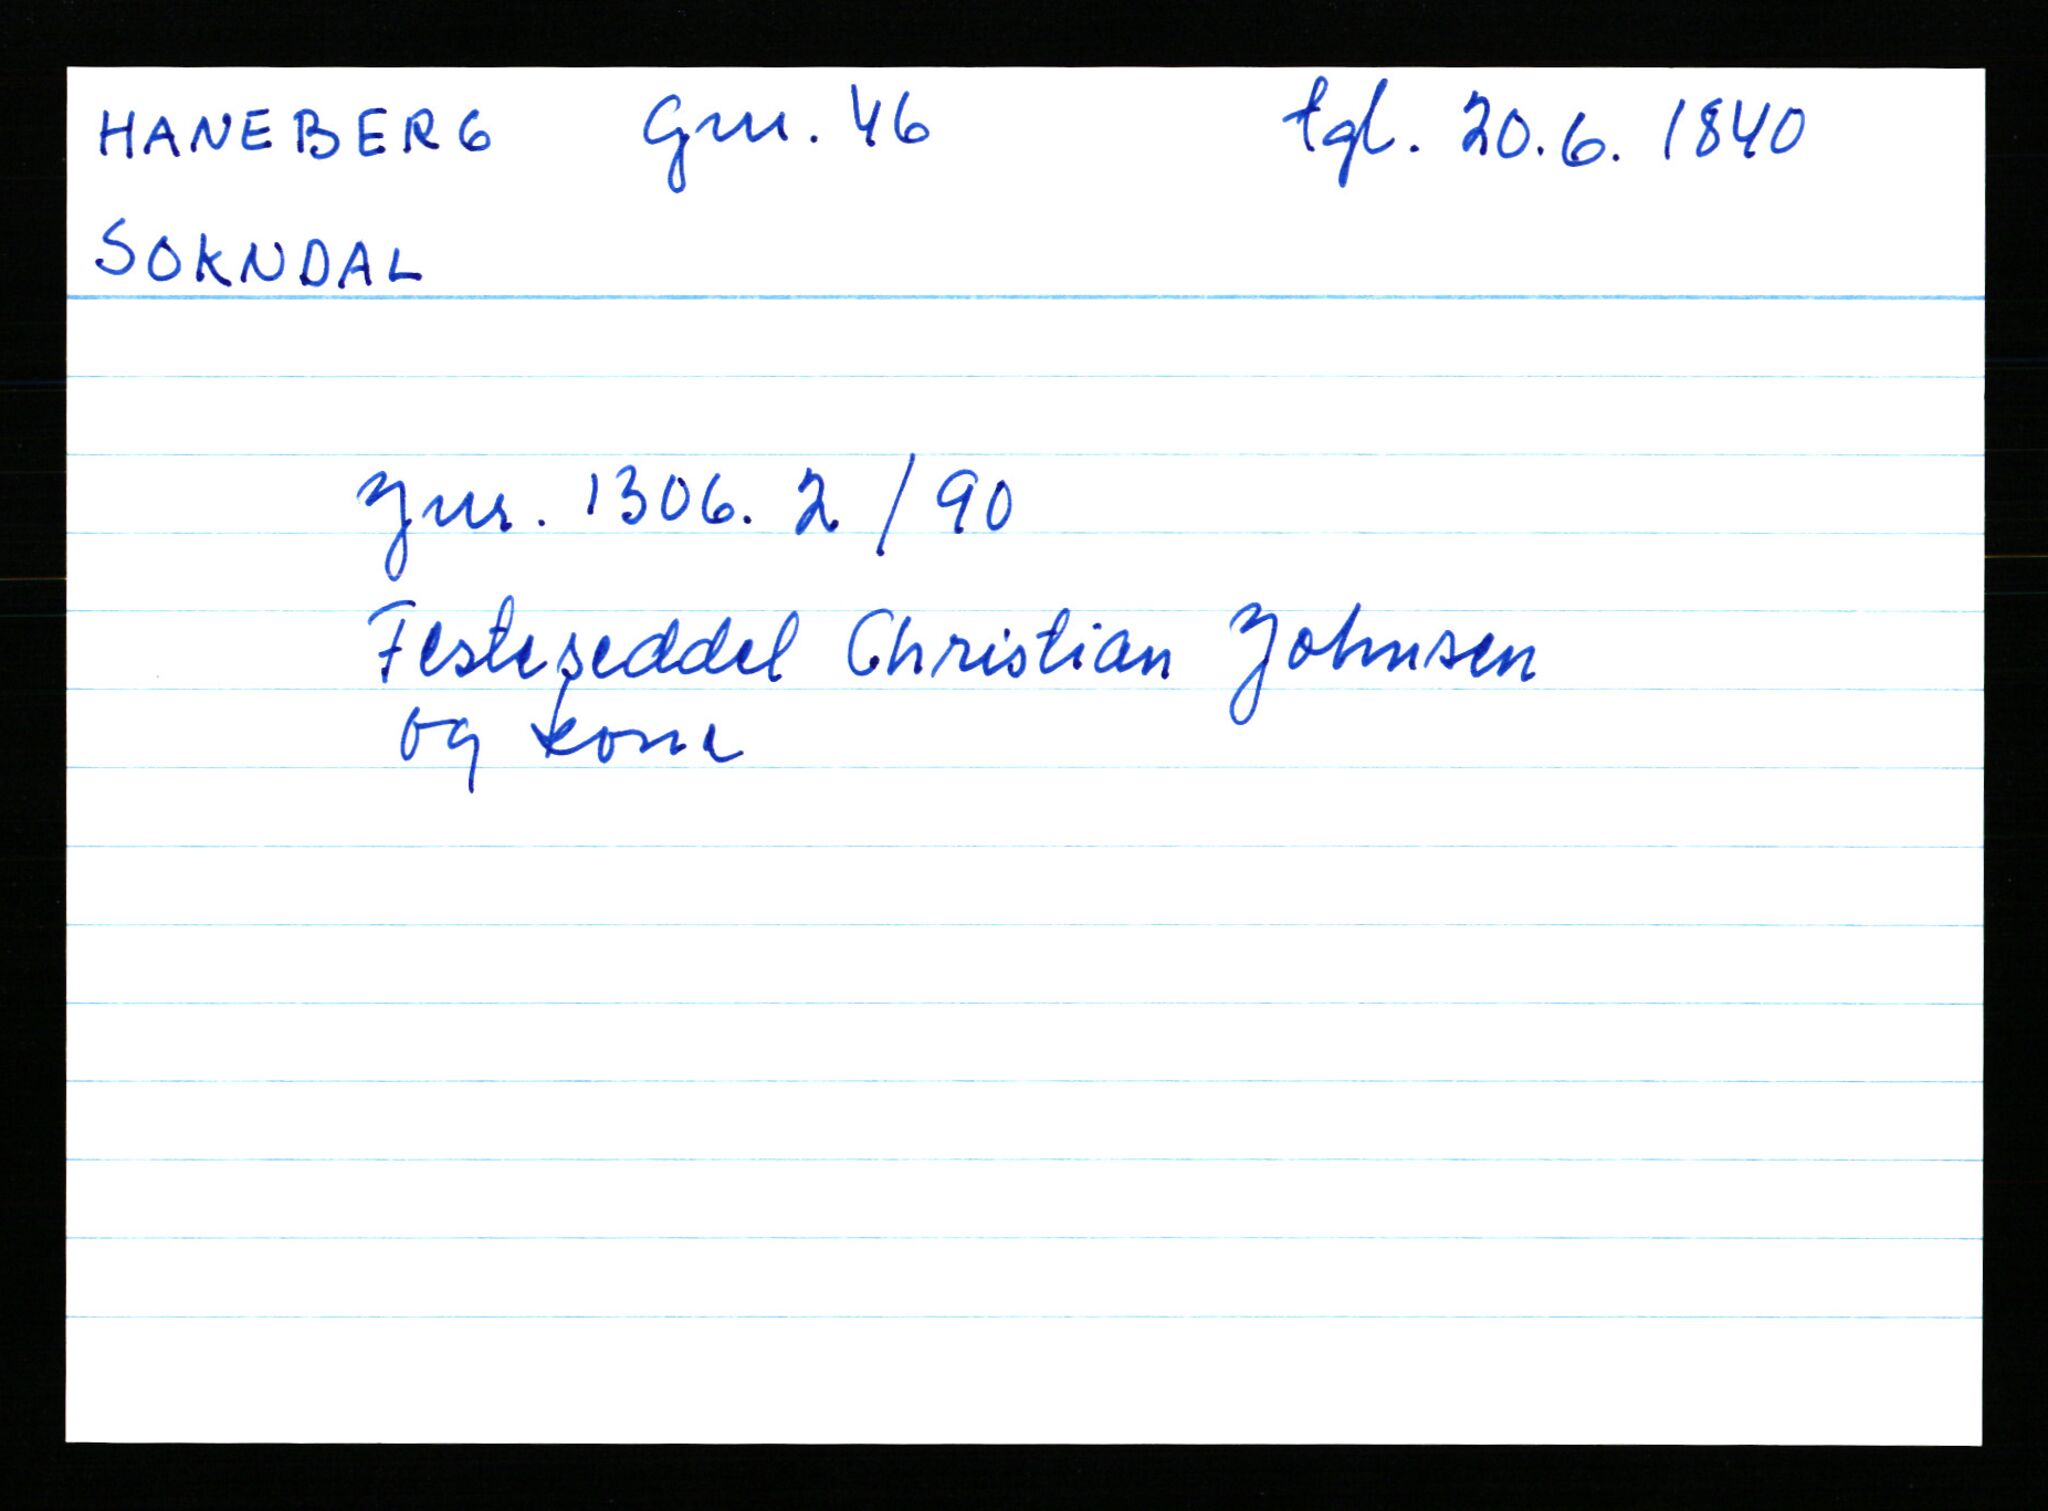 HANEBERG Gnr. 46 tgl. 20.6.1840
SOKNDAL
Jnr. 1306.2/90
Festeseddel Christian Johnsen
og kone